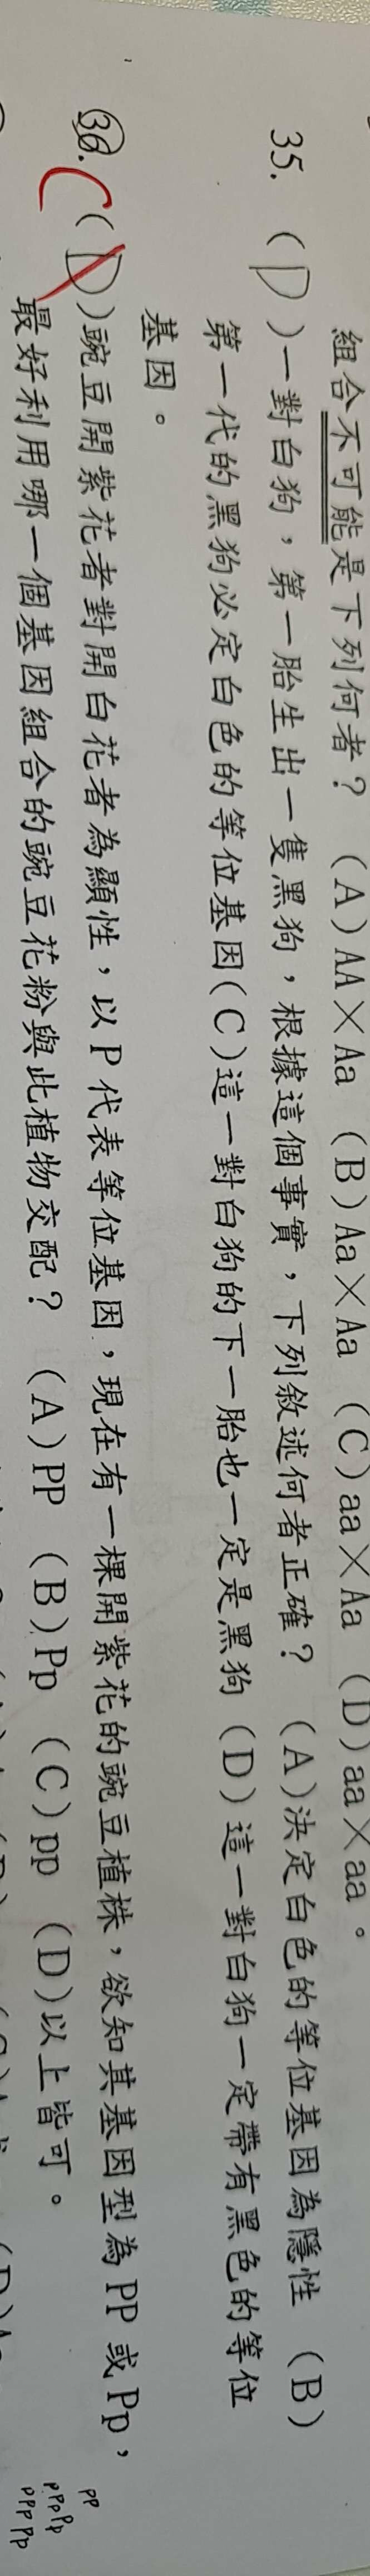 組合不可能是下列何者？ (A)AA×Aa (B)Aa×Aa (C)aa×Aa (D)aa×aa。
35. (D)一對白狗，第一胎生出一隻黑狗，根據這個事實，下列敘述何者正確？ (A)決定白色的等位基因為隱性 (B)
第一代的黑狗必定白色的等位基因(C)這一對白狗的下一胎也一定是黑狗 (D)這一對白狗一定帶有黑色的等位
基因。
36. C (D)豌豆開紫花者對開白花者為顯性，以P代表等位基因，現在有一棵開紫花的豌豆植株，欲知其基因型為PP或Pp，
最好利用哪一個基因組合的豌豆花粉與此植物交配？ (A)PP (B)Pp (C)pp (D)以上皆可。